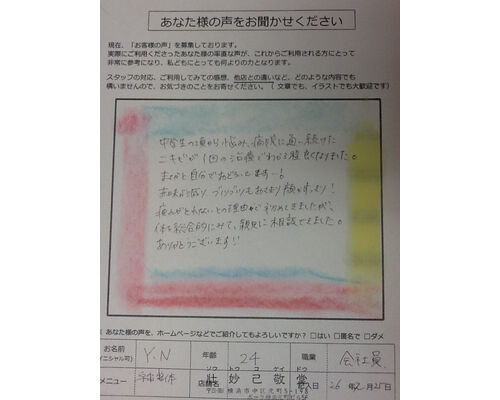 あなた様の声をお聞かせください
現在、「お客様の声」を募集しております。
実際にご利用くださったあなた様の率直な声が、これからご利用される方にとって
非常に参考になり、私どもにとっても何よりの力となります。
スタッフの対応、ご利用してみての感想、他店との違いなど、どのような内容でも
構いませんので、お気づきのことをお寄せください。（ 文章でも、イラストでも大歓迎です）
中学生の頃から悩み、病院に通い続けた
ニキビが1回の治療でわかる程良くなりました。
まさかと自分でおどろいてます…!
赤味が減り、ブツブツもおさまり顔がすっきり!
痛みがとれないとの理由で初めてきましたが、
体を総合的にみて、親身に相談できました。
ありがとうございます!!
あなた様の声を、ホームページなどでご紹介してもよろしいですか？ □はい □匿名で □ダメ
お名前 Y.N 年齢 24 職業 会社員
イニシャル可)
ソウ トウ コ ケイ ドウ
メニュー 店舗名 壮妙己敬堂 記入日 26年2月25日
横浜市中区元町5-198